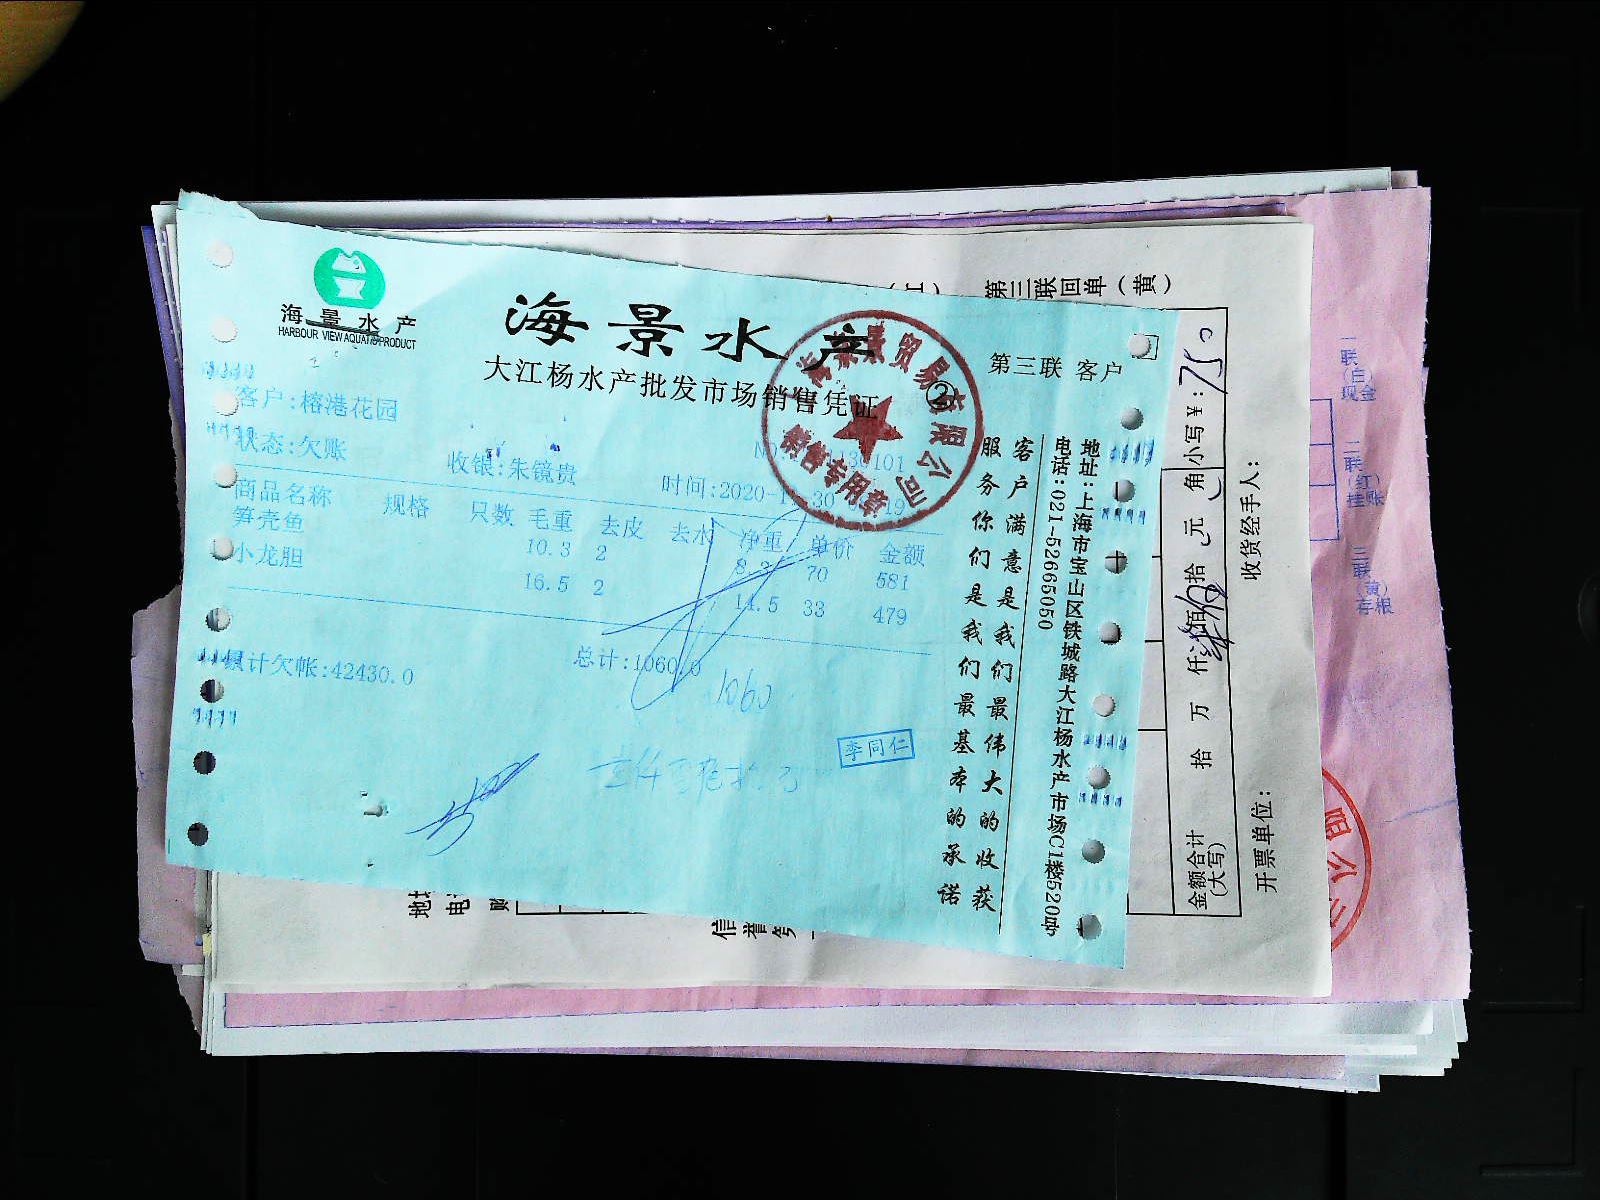 海景水产
HARBOUR VIEW AQUATIC PRODUCT
海景水产
大江杨水产批发市场销售凭证
③
第三联 客户
客户:榕港花园
状态:欠账
收银:朱镜贵
商品名称 规格 只数 毛重 去皮 去水 净重 单价 金额
笋壳鱼 10.3 2 8.3 70 581
小龙胆 16.5 2 14.5 33 479
累计欠帐:42430.0
总计:1060.0
1060
李同仁
贸易有限公司
销售专用章
客户满意是我们最伟大的收获
服务你们是我们最基本的承诺
地址:上海市宝山区铁城路大江杨水产市场C1楼520号
电话:021-52665050
第三联回单(黄)
金额合计
(大写)
拾 万 仟 佰 拾 元 角
小写¥: 750
开票单位:
收货经手人:
一联(白)现金
二联(红)挂账
三联(黄)存根
限公